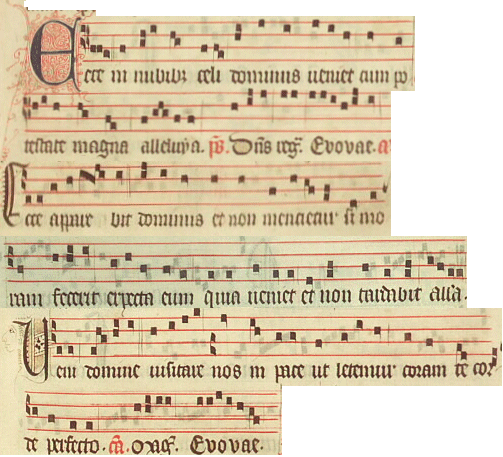 Ecce in nubibz celi dominus ueniet cum po
testate magna alleluya. ps. Dns reg. Evovae. a
Ecce appare bit dominus et non mencietur si mo
ram fecerit expecta eum quia ueniet et non tardabit alla.
Veni domine uisitare nos in pace ut letemur coram te cor
de perfecto. Evovae.